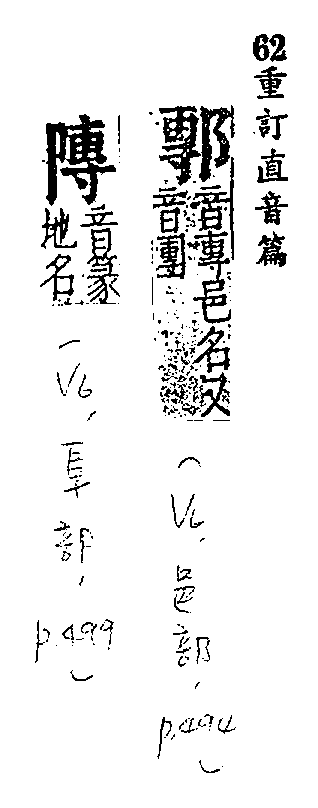 62重訂直音篇
鄟
音專邑名又
音團
(V6, 邑部, p.494)
音篆
地名
(V6, 阜部, p.499)